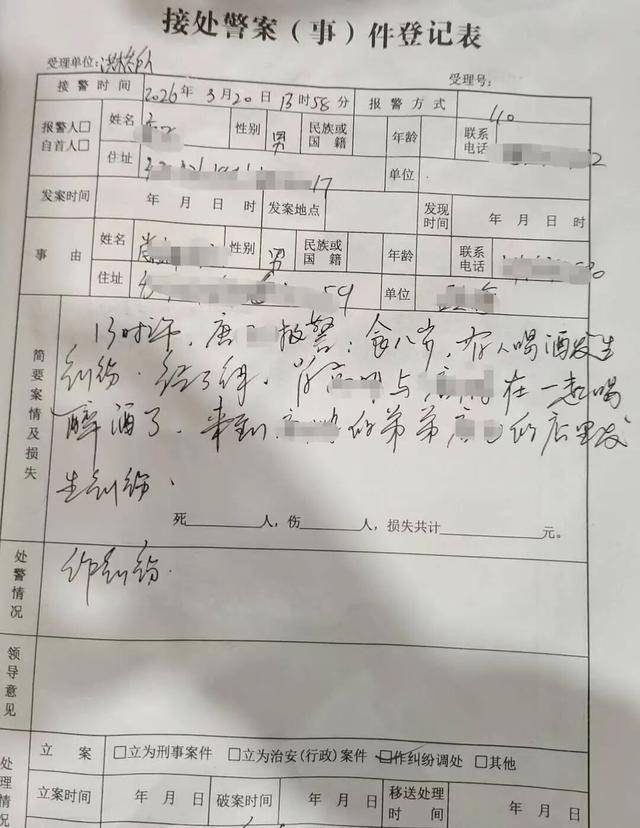 接处警案（事）件登记表
受理单位： 受理号：
接警时间 2026年3月20日13时58分 报警方式 110
报警人□ 自首人□ 姓名 性别 男 民族或国籍 年龄 联系电话 2
住址 17 单位
发案时间 年 月 日 发案地点 发现时间 年 月 日
事由 姓名 性别 男 民族或国籍 年龄 联系电话
住址 59 单位
简要案情及损失
13时许，唐 报警：俞八岁，有人喝酒发生
纠纷。经了解， 与 在一起喝
醉酒了，来到 的弟弟 的店里发
生纠纷。
死 人，伤 人，损失共计 元。
处警情况
作纠纷。
领导意见
处理情况
立案 □立为刑事案件 □立为治安(行政)案件 □作纠纷调处 □其他
立案时间 年 月 日 破案时间 年 月 日 移送处理时间 年 月 日